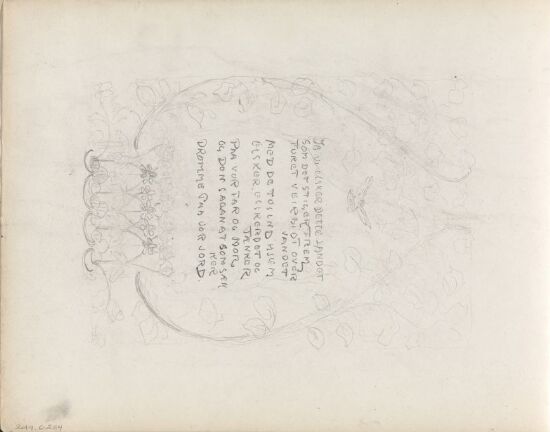 JA VI ELSKER DETTE LANDET
SOM DET STIGER FREM
FURET VEIRBIDT OVER
VANDET
MED DE TUSIND HJEM
ELSKER, ELSKER DET OG
TÆNKER
PAA VOR FAR OG MOR
OG DEN SAGANAT SOM SÆN
KER
DRØMME PAA VOR JORD.